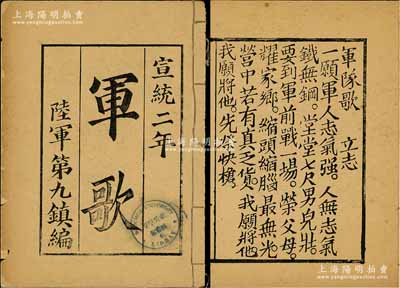 上海陽明拍賣
www.yangmingauction.com
宣統二年
軍歌
陸軍第九鎮編
軍隊歌 立志
一願軍人志氣强。人無志氣
鐵無鋼。堂堂七尺男兒壯。
要到軍前戰一場。榮父母。
耀家鄉。縮頭縮腦最無光
營中若有真乏貨。我願將他
我願將他。先快槍。
上海陽明拍賣
www.yangmingauction.com